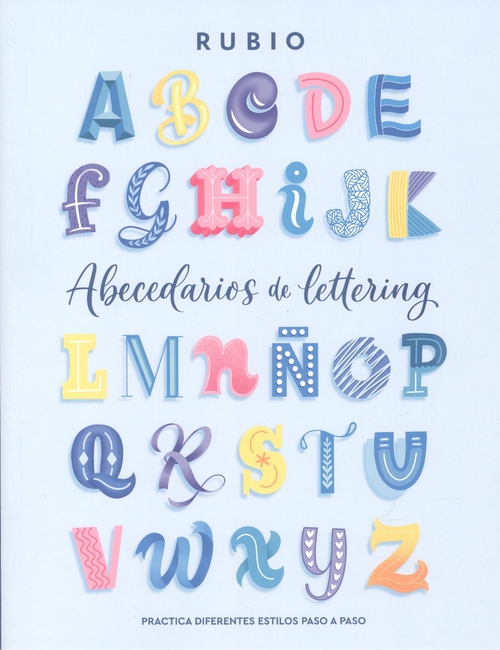 RUBIO
A B C D E
f G H i J K
Abecedarios de lettering
L M n Ñ O P
Q R S T U
V w x y Z
PRACTICA DIFERENTES ESTILOS PASO A PASO